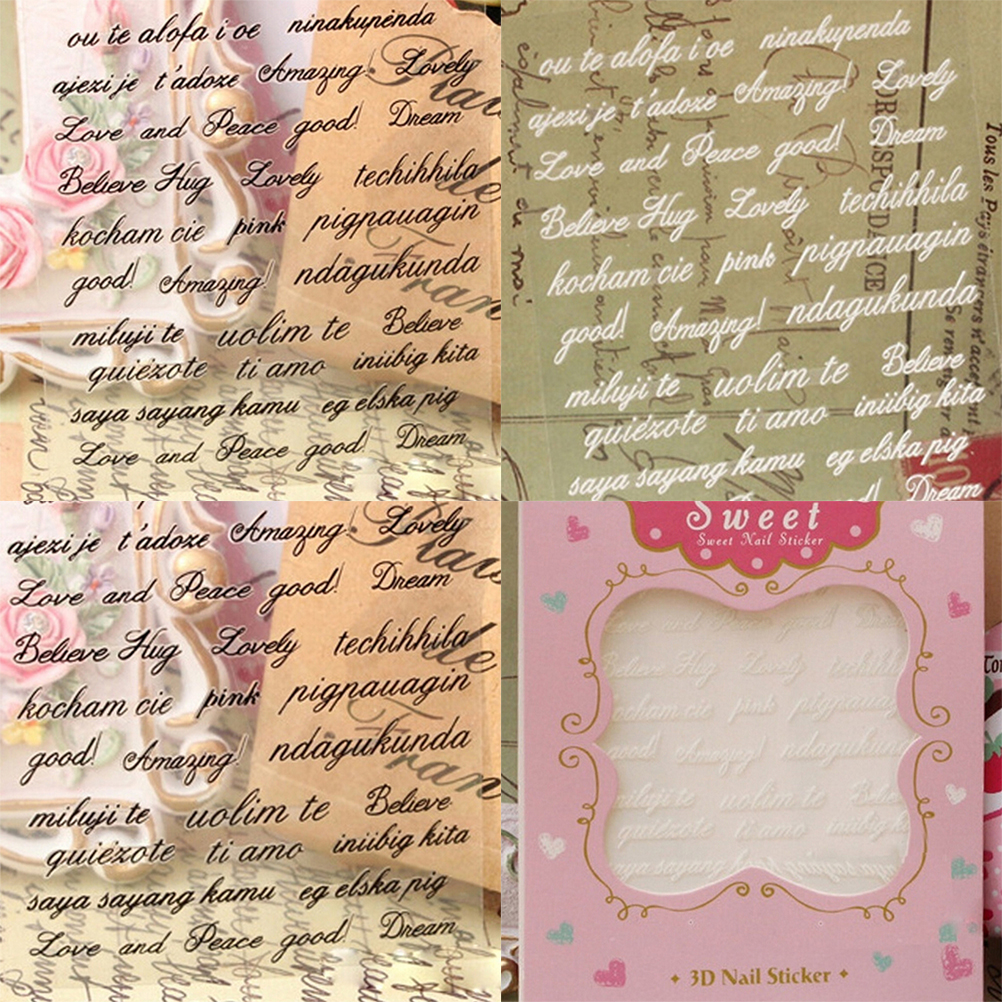 ou te alofa i oe ninakupenda
ajezi je t'adoze Amazing! Lovely
Love and Peace good! Dream
Believe Hug Lovely techihhila
kocham cie pink pignauagin
good! Amazing! ndagukunda
miluji te uolim te Believe
quiézote ti amo iniibig kita
saya sayang kamu eg elska pig
Love and Peace good! Dream
ou te alofa i oe ninakupenda
ajezi je t'adoze Amazing! Lovely
Love and Peace good! Dream
Believe Hug Lovely techihhila
kocham cie pink pignauagin
good! Amazing! ndagukunda
miluji te uolim te Believe
quiézote ti amo iniibig kita
saya sayang kamu eg elska pig
Dream
Tous les Pays étrangers n'accept
ajezi je t'adoze Amazing! Lovely
Love and Peace good! Dream
Believe Hug Lovely techihhila
kocham cie pink pignauagin
good! Amazing! ndagukunda
miluji te uolim te Believe
quiézote ti amo iniibig kita
saya sayang kamu eg elska pig
Love and Peace good! Dream
Sweet
Sweet Nail Sticker
Believe Hug Lovely
kocham cie pink
good! Amazing! ndagukun
miluji te uolim te Belie
quiézote ti amo
3D Nail Sticker